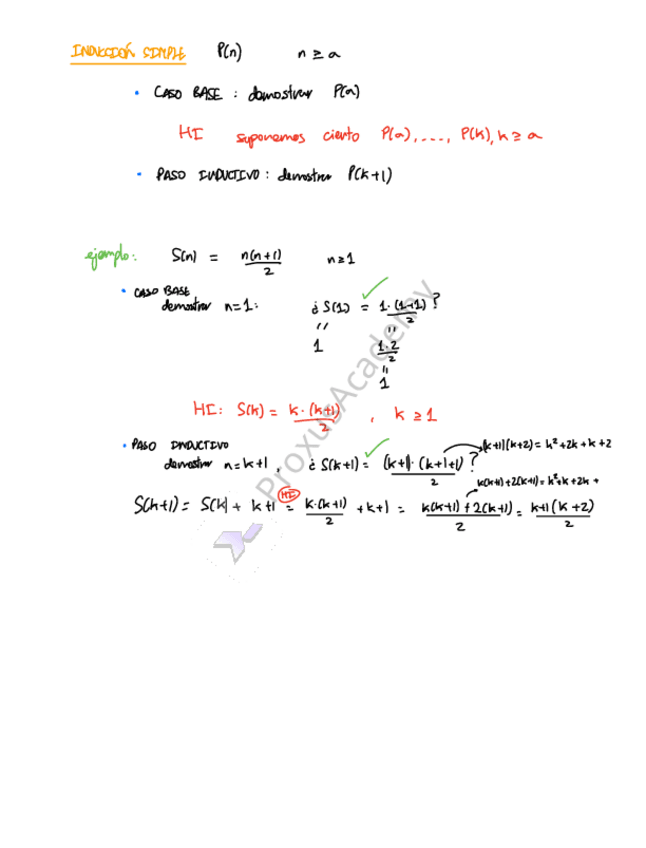 INDUCCIÓN SIMPLE P(n) n ≥ a
• CASO BASE : demostrar P(a)
HI suponemos cierto P(a), ...., P(k), k ≥ a
• PASO INDUCTIVO : demostrar P(k+1)
ejemplo: S(n) = n(n+1)/2 n≥1
• CASO BASE
demostrar n=1: ¿ S(1) = 1·(1+1)/2 ?
" "
1 1·2/2
"
1
HI: S(k) = k·(k+1)/2 , k ≥ 1
• PASO INDUCTIVO (k+1)(k+2) = k²+2k+k+2
demostrar n=k+1, ¿ S(k+1) = (k+1)·(k+1+1)/2 ?
k(k+1)+2(k+1) = k²+k+2k+
S(k+1) = S(k) + k+1 = HI k·(k+1)/2 + k+1 = k(k+1)+2(k+1)/2 = k+1(k+2)/2
ProxusAcademy